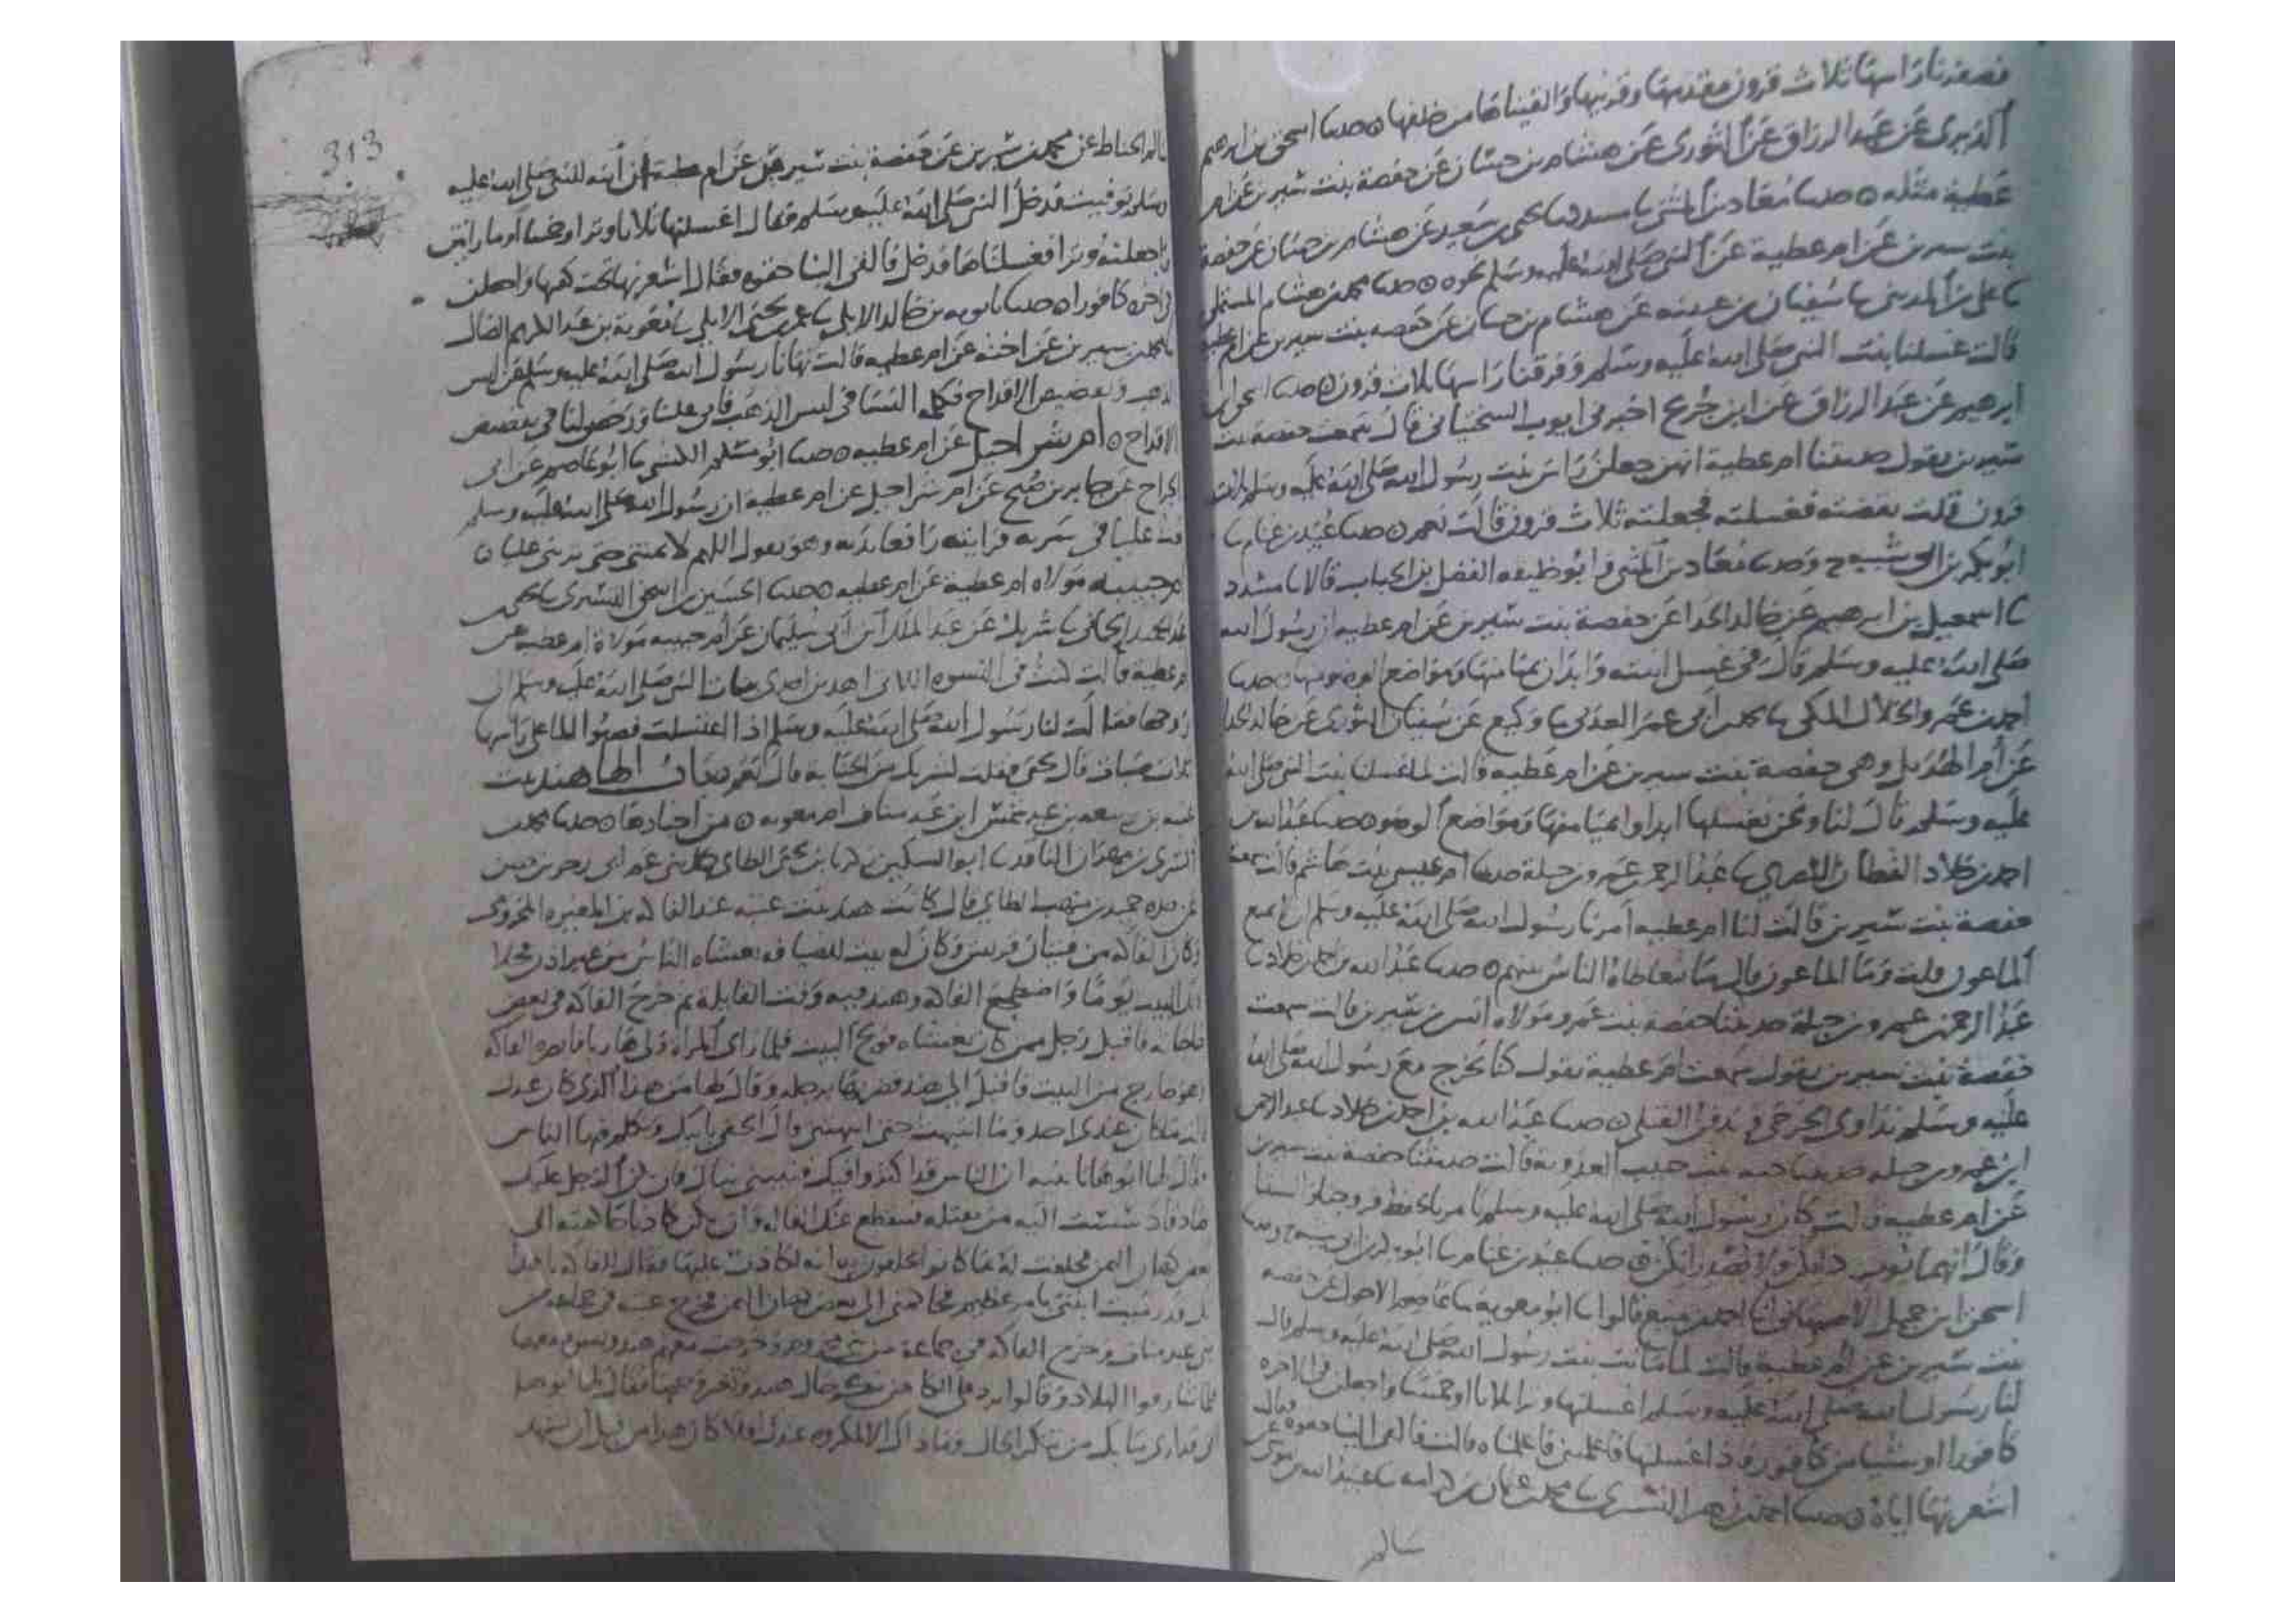 فضفرنا راسها ثلاث قرون مقدمها وقرنيها والقيناها من خلفها ه حدثنا اسحق بن ابرهيم
الدبري عن عبد الرزاق عن الثوري عن هشام بن حسان عن حفصة بنت سيرين عن ام
عطية مثله ه حدثنا معاذ بن المثنى نا مسدد نا يحيى بن سعيد عن هشام بن حسان عن حفصة
بنت سيرين عن ام عطية عن النبي صلى الله عليه وسلم نحوه ه حدثنا محمد بن هشام المستملي
نا علي بن المديني نا سفيان بن عيينه عن هشام بن حسان عن حفصه بنت سيرين عن ام عطيه
قالت غسلنا بنت النبي صلى الله عليه وسلم وفرقنا راسها ثلاث قرون ه حدثنا اسحق بن
ابرهيم عن عبد الرزاق عن ابن جريج اخبرني ايوب السختياني قال سمعت حفصة بنت
سيرين يقول حدثتنا ام عطية انهن جعلن راس بنت رسول الله صلى الله عليه وسلم ثلاث
قرون قلت نقضته فغسلته فجعلته ثلاث قرون قالت نعم ه حدثنا عبيد بن غنام نا
ابو بكر بن ابي شيبه ح وحدثنا معاذ بن المثنى وابو خليفه الفضل بن الحباب قالا نا مسدد
نا اسمعيل بن ابرهيم عن خالد الحذا عن حفصة بنت سيرين عن ام عطيه ان رسول الله
صلى الله عليه وسلم قال في غسل ابنته وابدان بميامنها ومواضع الوضو منها ه حدثنا
احمد بن عمرو الخلال المكي نا محمد بن ابي عمر العدني نا وكيع عن سفيان الثوري عن خالد الحذا
عن ام الهذيل وهي حفصة بنت سيرين عن ام عطيه قالت لما غسلنا بنت النبي صلى الله
عليه وسلم قال لنا ونحن نغسلها ابداوا بميامنها ومواضع الوضو ه حدثنا عبد الله بن
احمد بن خلاد القطان البصري نا عبد الرحمن بن عمرو بن جبلة حدثنا ام عبيس بنت هاشم قالت سمعت
حفصة بنت سيرين قالت لنا ام عطيه امرنا رسول الله صلى الله عليه وسلم ان لا نمنع
الماعون قلت وما الماعون قال ما يتعاطاه الناس بينهم ه حدثنا عبد الله بن احمد بن خلاد نا
عبد الرحمن بن عمرو بن جبلة حدثتنا حفصة بنت عمرو مولاه انس بن سيرين قالت سمعت
حفصة بنت سيرين يقول سمعت ام عطية تقول كنا نخرج مع رسول الله صلى الله
عليه وسلم نداوي الجرحى وندفن القتلى ه حدثنا عبد الله بن احمد بن خلاد نا عبد الرحمن
ابن عمرو بن جبله حدثتنا حبه بنت حبيب العدويه قالت حدثتنا حفصة بنت سيرين
عن ام عطيه قالت كان رسول الله صلى الله عليه وسلم
وقال حدثنا عبيد بن غنام نا ابو بكر بن ابي شيبه ح وحدثنا
اسحق ابن جميل الاصبهاني نا احمد بن منيع قالوا نا ابو معوية نا عاصم الاحول عن حفصه
بنت سيرين عن ام عطية قالت لما ماتت بنت رسول الله صلى الله عليه وسلم قال
لنا رسول الله صلى الله عليه وسلم اغسلنها وترا ثلاثا او خمسا واجعلن في الاخره
كافورا او شيا من كافور فاذا غسلتنها فاعلمنني فاعلمناه قالت فالقى الينا حقوه وقال
اشعرنها اياه ه حدثنا احمد بن زهير التستري نا محمد بن عثمان بن كرامه نا عبيد الله بن موسى عن
سالم
313
سالم الخياط عن محمد بن سيرين عن حفصة بنت سيرين عن ام عطية ان ابنه للنبي صلى الله عليه
وسلم توفيت فدخل النبي صلى الله عليه وسلم فقال اغسلنها ثلاثا وترا او خمسا او ما رايتن
واجعلنه وترا فغسلناها فدخل فالقى الينا حقوه فقال اشعرنها تحت كفنها واجعلن
في اخره كافورا ه حدثنا بن خالد الايلي نا عمر بن يحيى الايلي نا معوية بن عبد الكريم الضال
نا محمد بن سيرين عن اخته عن ام عطيه قالت نهانا رسول الله صلى الله عليه وسلم عن لبس
الذهب وتفضيض الاقداح فكلمه النسا في لبس الذهب فابى علينا ورخص لنا في تفضيض
الاقداح ه ام شراحيل عن ام عطيه ه حدثنا ابو مسلم الكشي نا ابو عاصم عن ابي
الجراح عن جابر بن صبح عن ام شراحيل عن ام عطية ان رسول الله صلى الله عليه وسلم
بعث عليا في سريه فرايته رافعا يديه وهو يقول اللهم لا تمتني حتى تريني عليا ه
ام حبيبه مولاه ام عطية عن ام عطيه ه حدثنا الحسين بن اسحق التستري نا يحيى
الحميد الحماني نا شريك عن عبد الملك بن ابي سليمان عن ام حبيبه مولاة ام عطيه عن
ام عطية قالت كنت في النسوه اللاتي اهدين احدى بنات النبي صلى الله عليه وسلم الى
زوجها فقالت لنا رسول الله صلى الله عليه وسلم اذا اغتسلت فصبوا الما على راسها
ثلاث قال يحيى فقلت لشريك من الجنابة قال نعم الها هند بنت
عتبه بن ربيعه بن عبد شمس ابن عبد مناف ام معويه ه من اخبارها ه حدثنا محمد بن
السري بن مهران الناقد نا ابو السكين زكريا بن يحيى الطاي حدثني عم ابي زحر بن حصن
عن جده حميد بن منهب الطاي قال كانت هند بنت عتبه عند الفاكه بن المغيره المخزومي
وكان الفاكه من فتيان قريش وكان له بيت للضيافه يغشاه الناس من غير اذن فخلا
ذلك البيت يوما واضطجع الفاكه وهند فيه وقت القايلة ثم خرج الفاكه في بعض
حاجاته فاقبل رجل ممن كان يغشاه فولج البيت فلما راى المراه ولى هاربا فابصره الفاكه
وهو خارج من البيت فاقبل الى هند فضربها برجله وقال لها من هذا الذي كان عندك
قالت ما كان عندي احد وما انتبهت حتى انبهتني قال الحقي بابيك وتكلم فيها الناس
فقال لها ابوها يا بنيه ان الناس قد اكثروا فيك فنبيني نباك فان يكن الرجل عليك
صادقا دسست اليه من يقتله فينقطع عنك القاله وان يكن كاذبا حاكمته الى
بعض كهان اليمن فحلفت له بما كانوا يحلفون به انه لكاذب عليها فقال للفاكه يا هذا
انك قد رميت ابنتي بامر عظيم فحاكمني الى بعض كهان اليمن فخرج عتبه في جماعه من
بني عبد مناف وخرج الفاكه في جماعة من بني مخزوم وخرجت معهم هند ونسوه معها
فلما شارفوا البلاد وقالوا نرد على الكاهن تنكر حال هند وتغير وجهها فقال لها ابوها
اني قد ارى ما بك من تنكر الحال وما ذاك الا لمكروه عندك افلا كان هذا من قبل ان يشهد